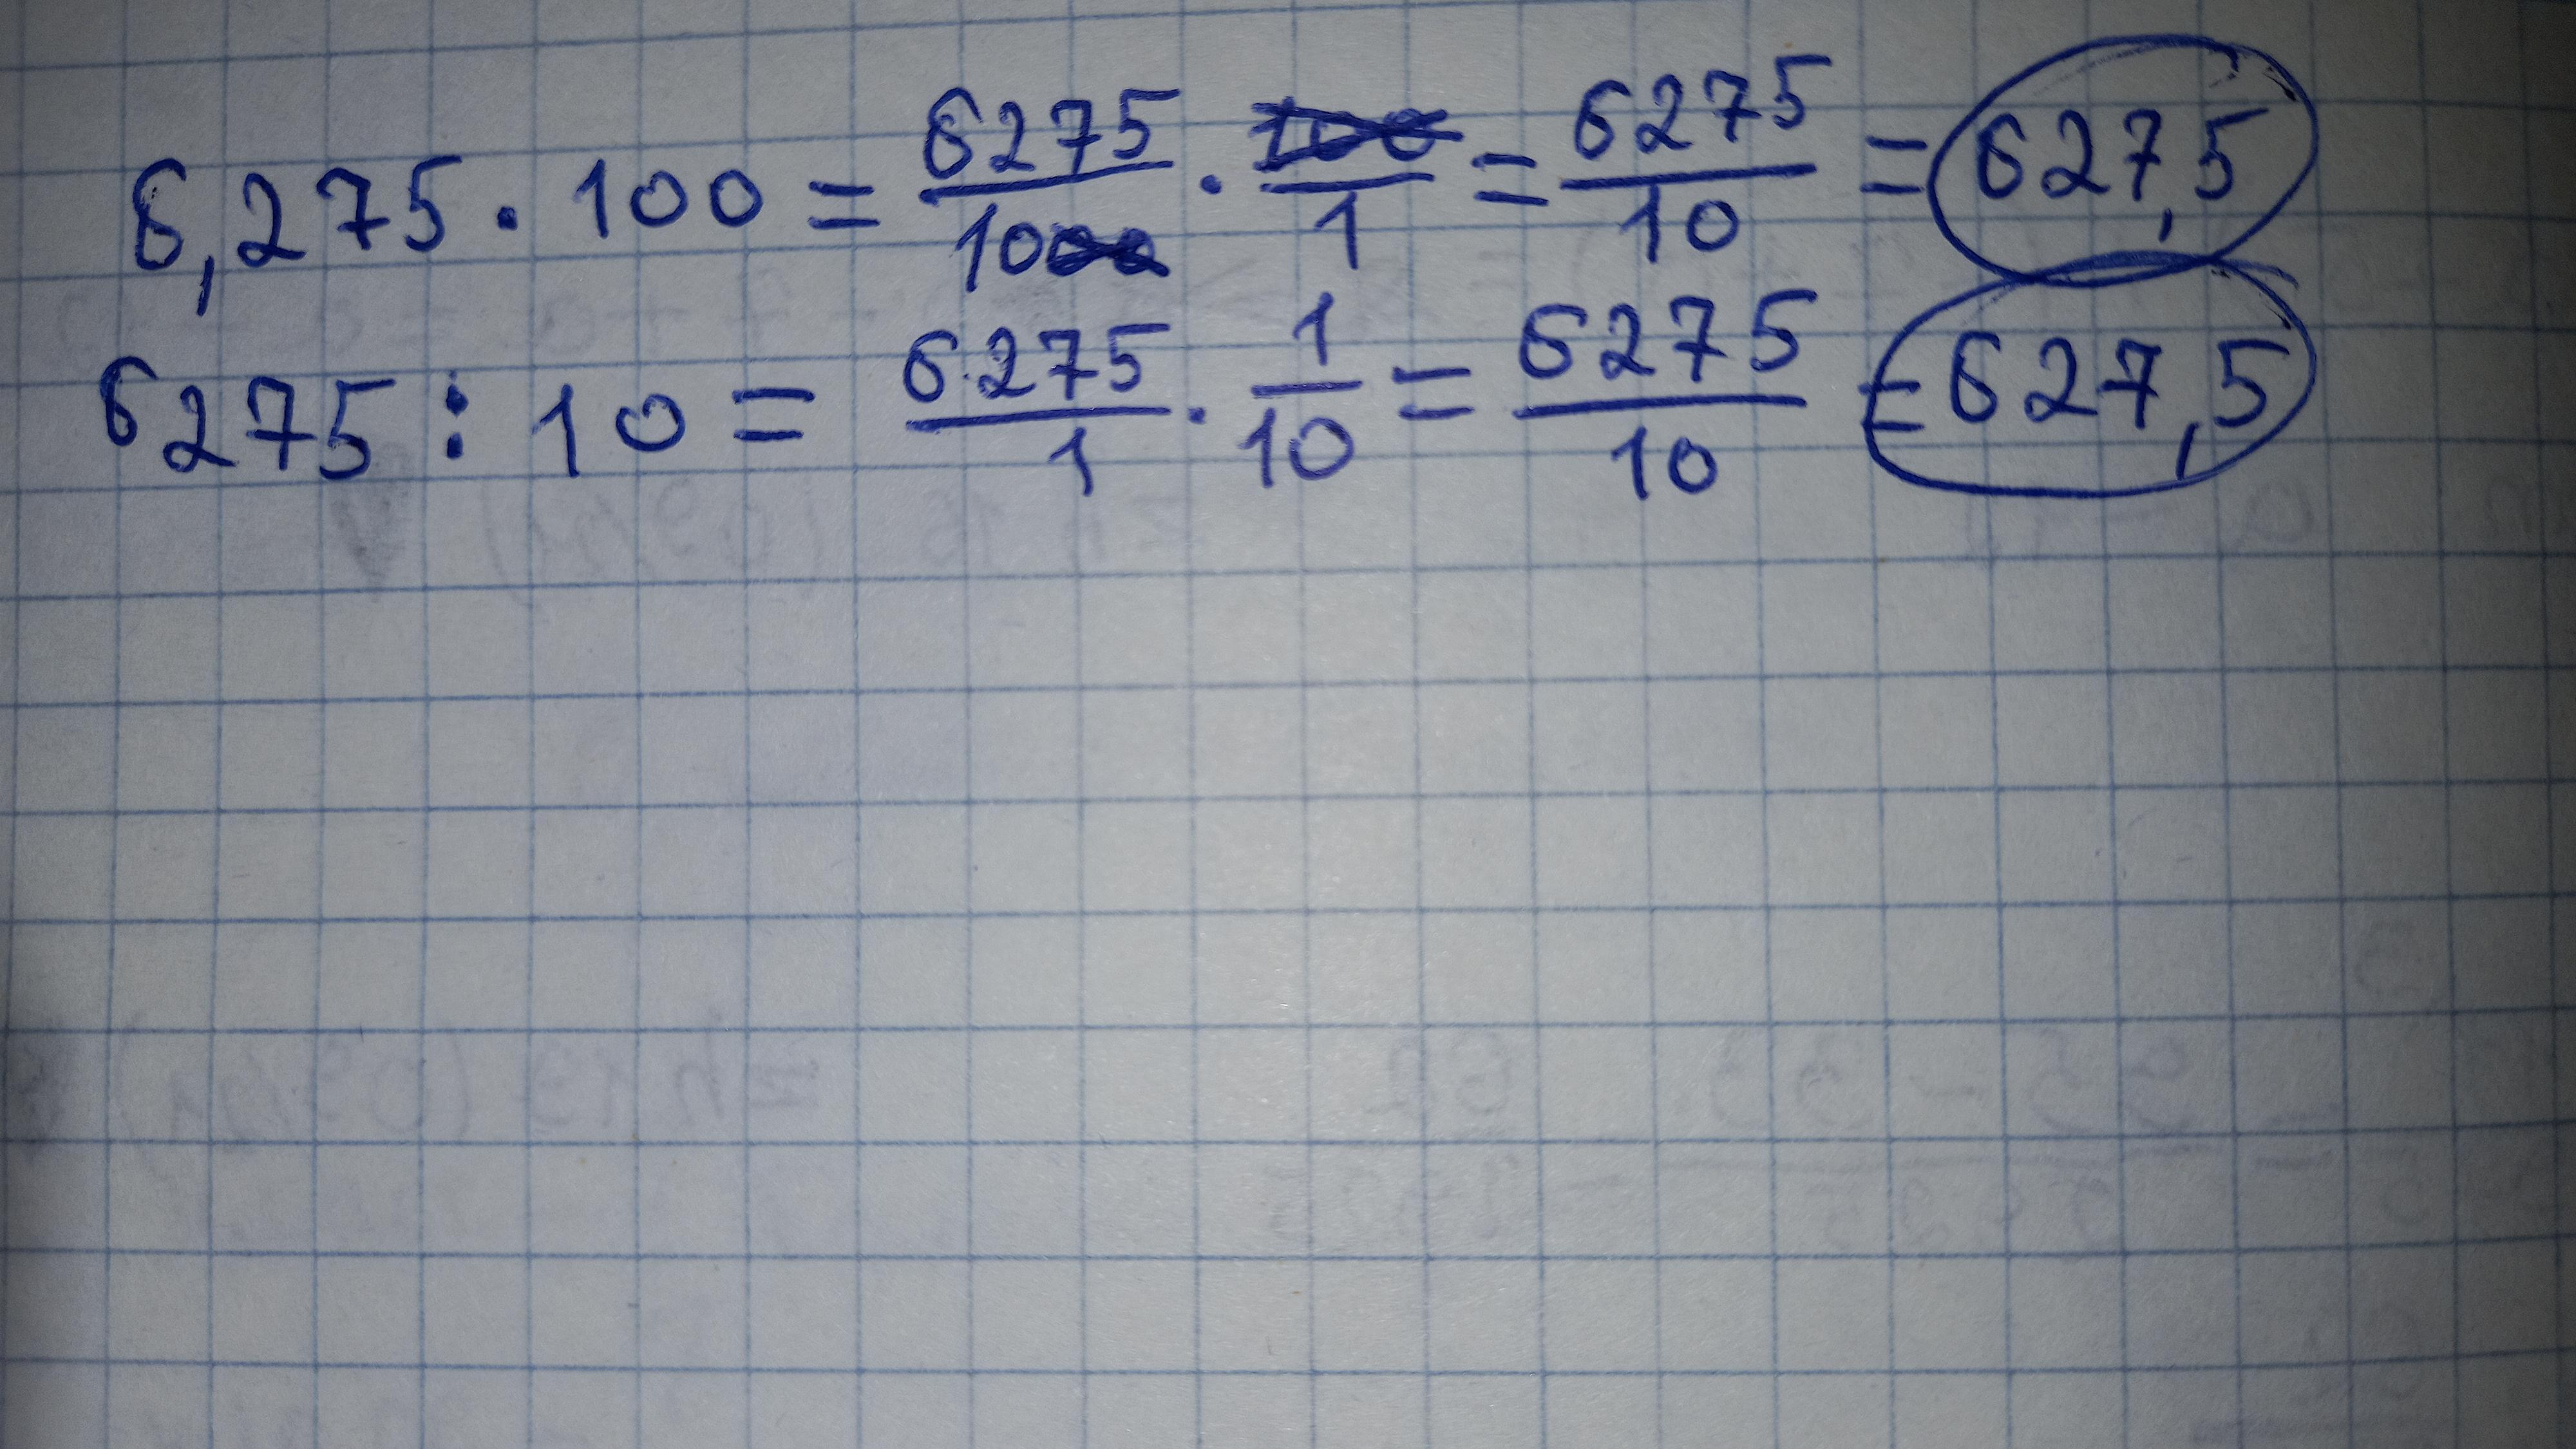 6,275 · 100 = 6275/1000 · 100/1 = 6275/10 = 627,5
6275 : 10 = 6275/1 · 1/10 = 6275/10 = 627,5